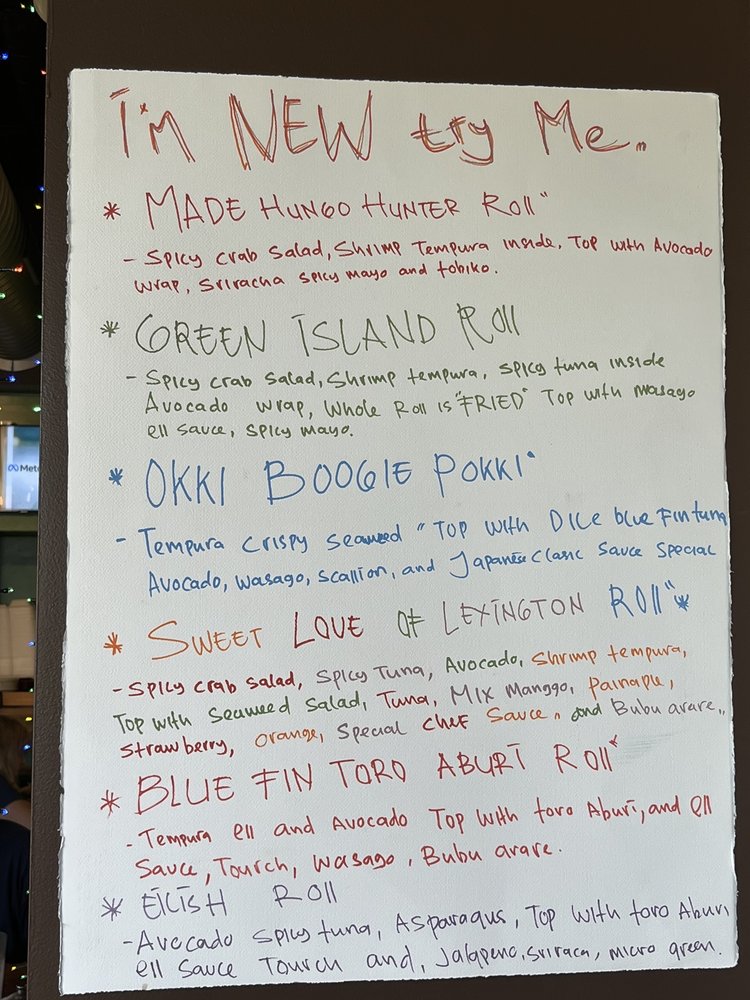 I'm NEW try Me.
* MADE HUNGO HUNTER Roll"
- Spicy crab Salad, Shrimp Tempura inside, Top with Avocado
wrap, Sriracha Spicy mayo and tobiko.
* GREEN ISLAND Roll
- Spicy crab Salad, Shrimp tempura, Spicy tuna inside
Avocado wrap, Whole Roll is "FRIED" Top with masago
ell sauce, Spicy mayo.
* OKKI BOOGIE POKKI"
- Tempura crispy seaweed "Top with Dice blue Fin tuna
Avocado, wasago, scallion, and Japanese Clasic Sauce Special
* SWEET LOVE OF LEXINGTON Roll"*
- Spicy crab Salad, Spicy Tuna, Avocado, Shrimp tempura,
Top with Seaweed Salad, Tuna, Mix Manggo, Painaple,
Strawberry, Orange, Special Chef Sauce, and Bubu arare,,
* BLUE FIN TORO ABURI Roll"
- Tempura ell and Avocado Top with toro Aburi, and ell
Sauce, Tourch, wasago, Bubu arare.
* EILISH ROLL
- Avocado Spicy tuna, Asparagus, Top with toro Aburi
ell sauce Tourch and, Jalapeno, Sriraca, micro green.
Meta